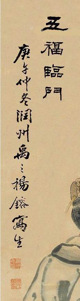 五福臨門
庚午仲冬潤州禹之楊鎔寫生